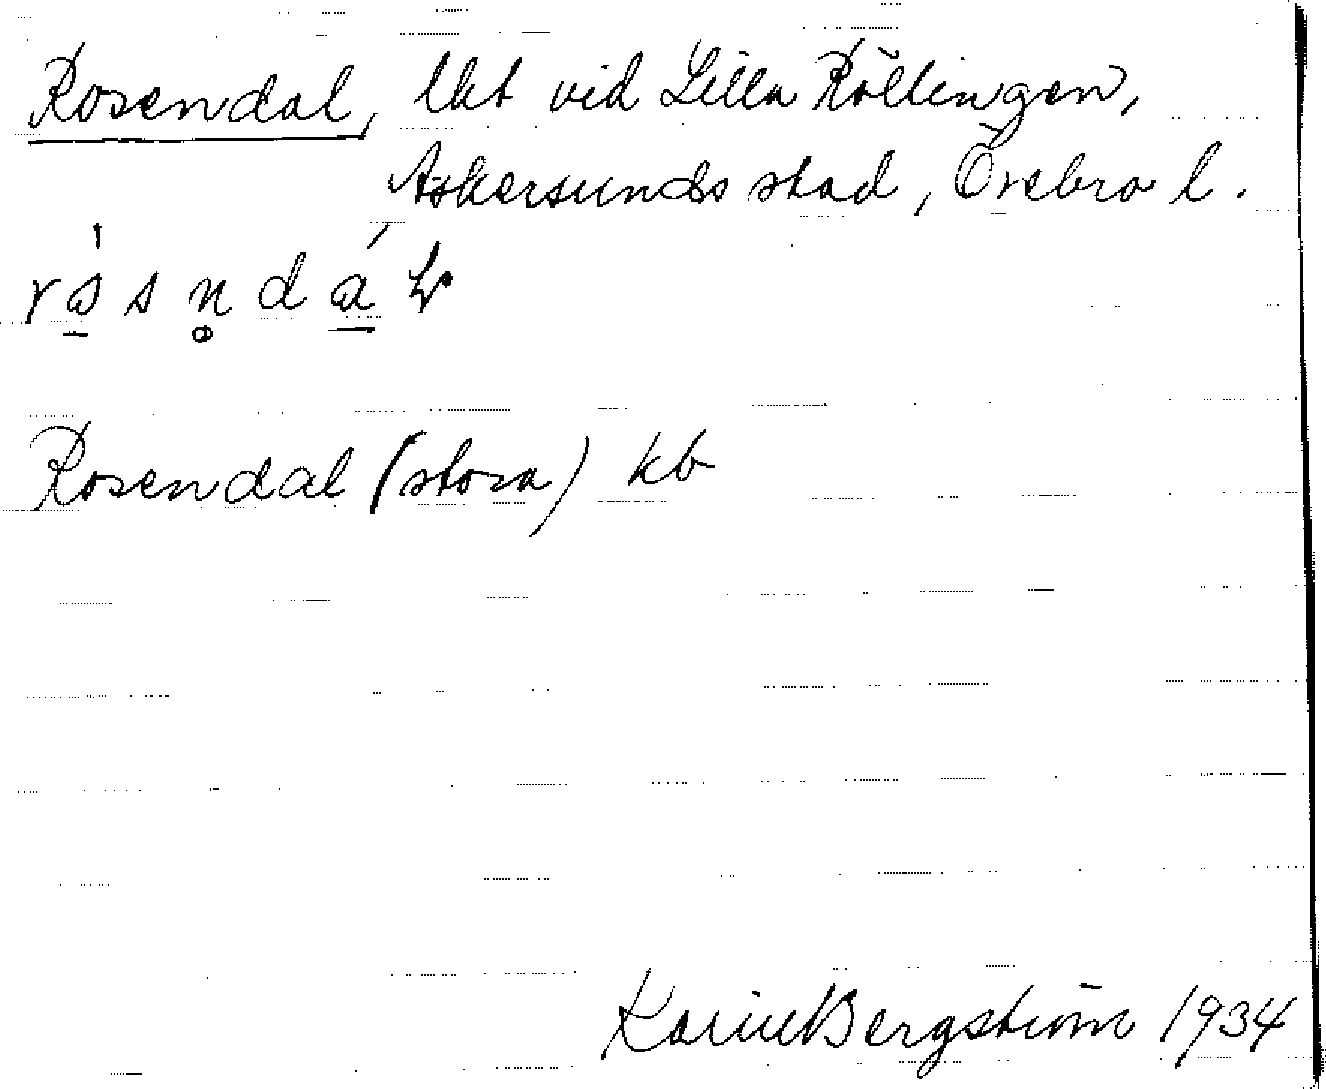 Rosendal, lht vid Lilla Rölling̃en,
Askersunds stad, Örebro l.
Rosendal (stora) kb
Karin Bergström 1934